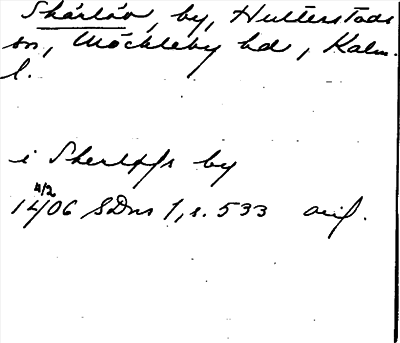 Skärlöv, by, Hulterstads
sn, Möckleby hd, Kalm.
l.
i Skerlefs by
4/2
1406 SDns 1, s. 533 orig.